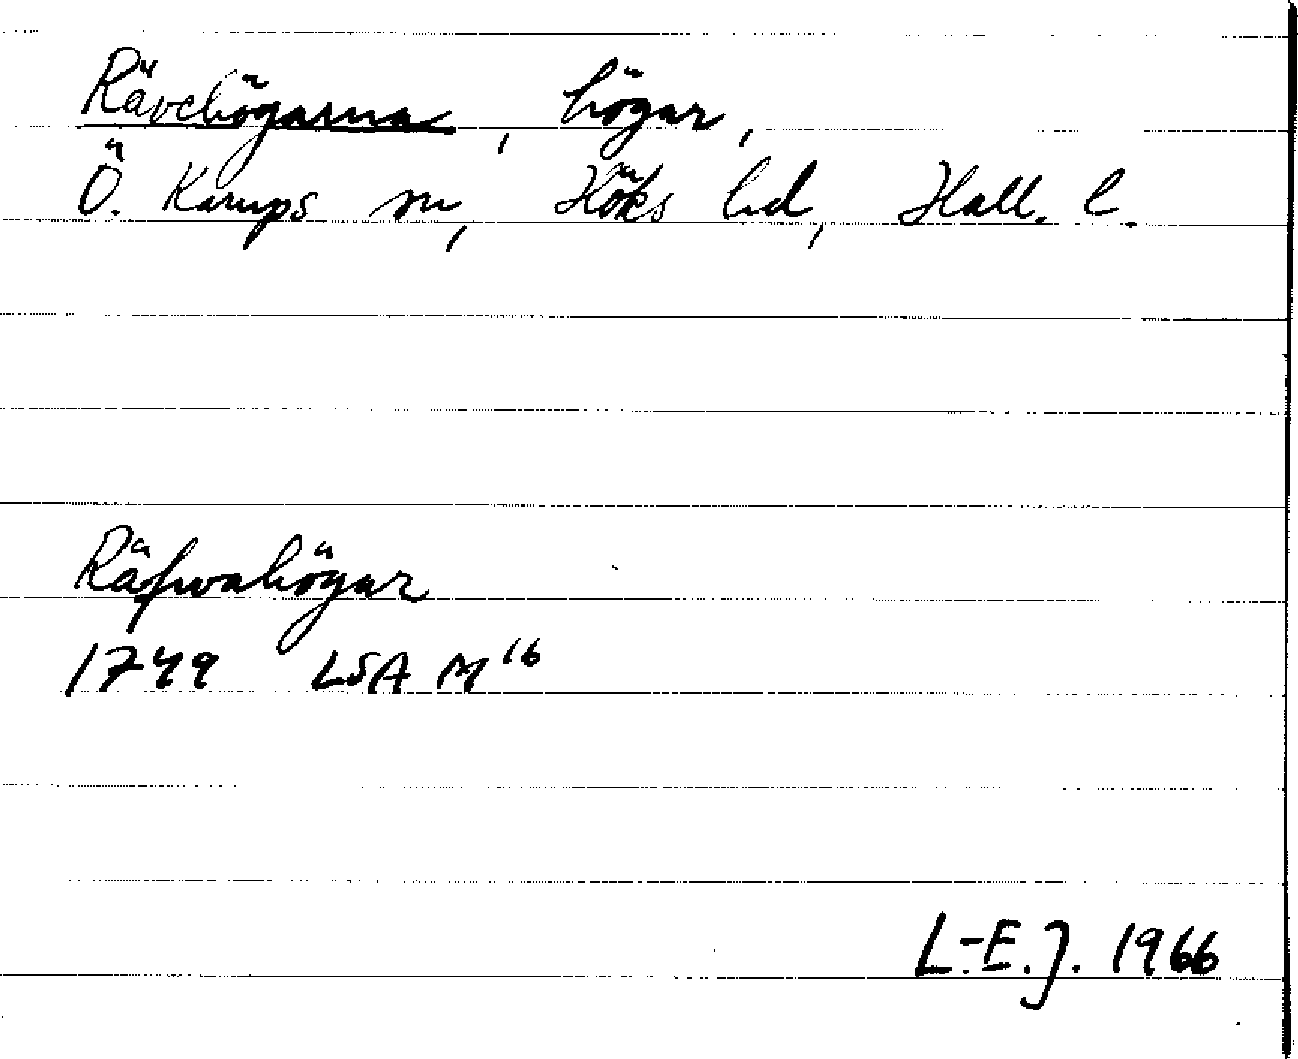 Rävehögarna, högar,
Ö. Karups sn, Höks hd, Hall. l.
Räfwahögar
1749 LSA M 16
L.-E.J. 1966